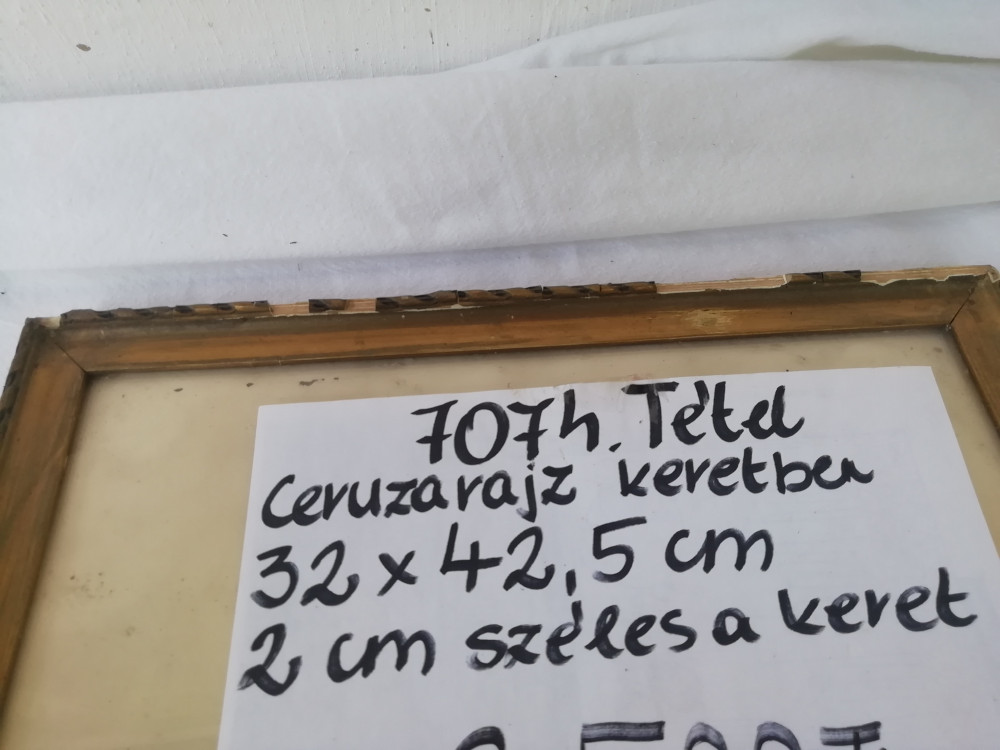 707h. Tétel
Ceruzarajz keretben
32 x 42,5 cm
2 cm széles a keret